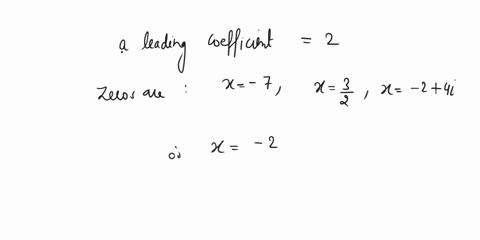 a leading coefficient = 2
Zeros are : x = -7, x = 3/2, x = -2+4i
x = -2